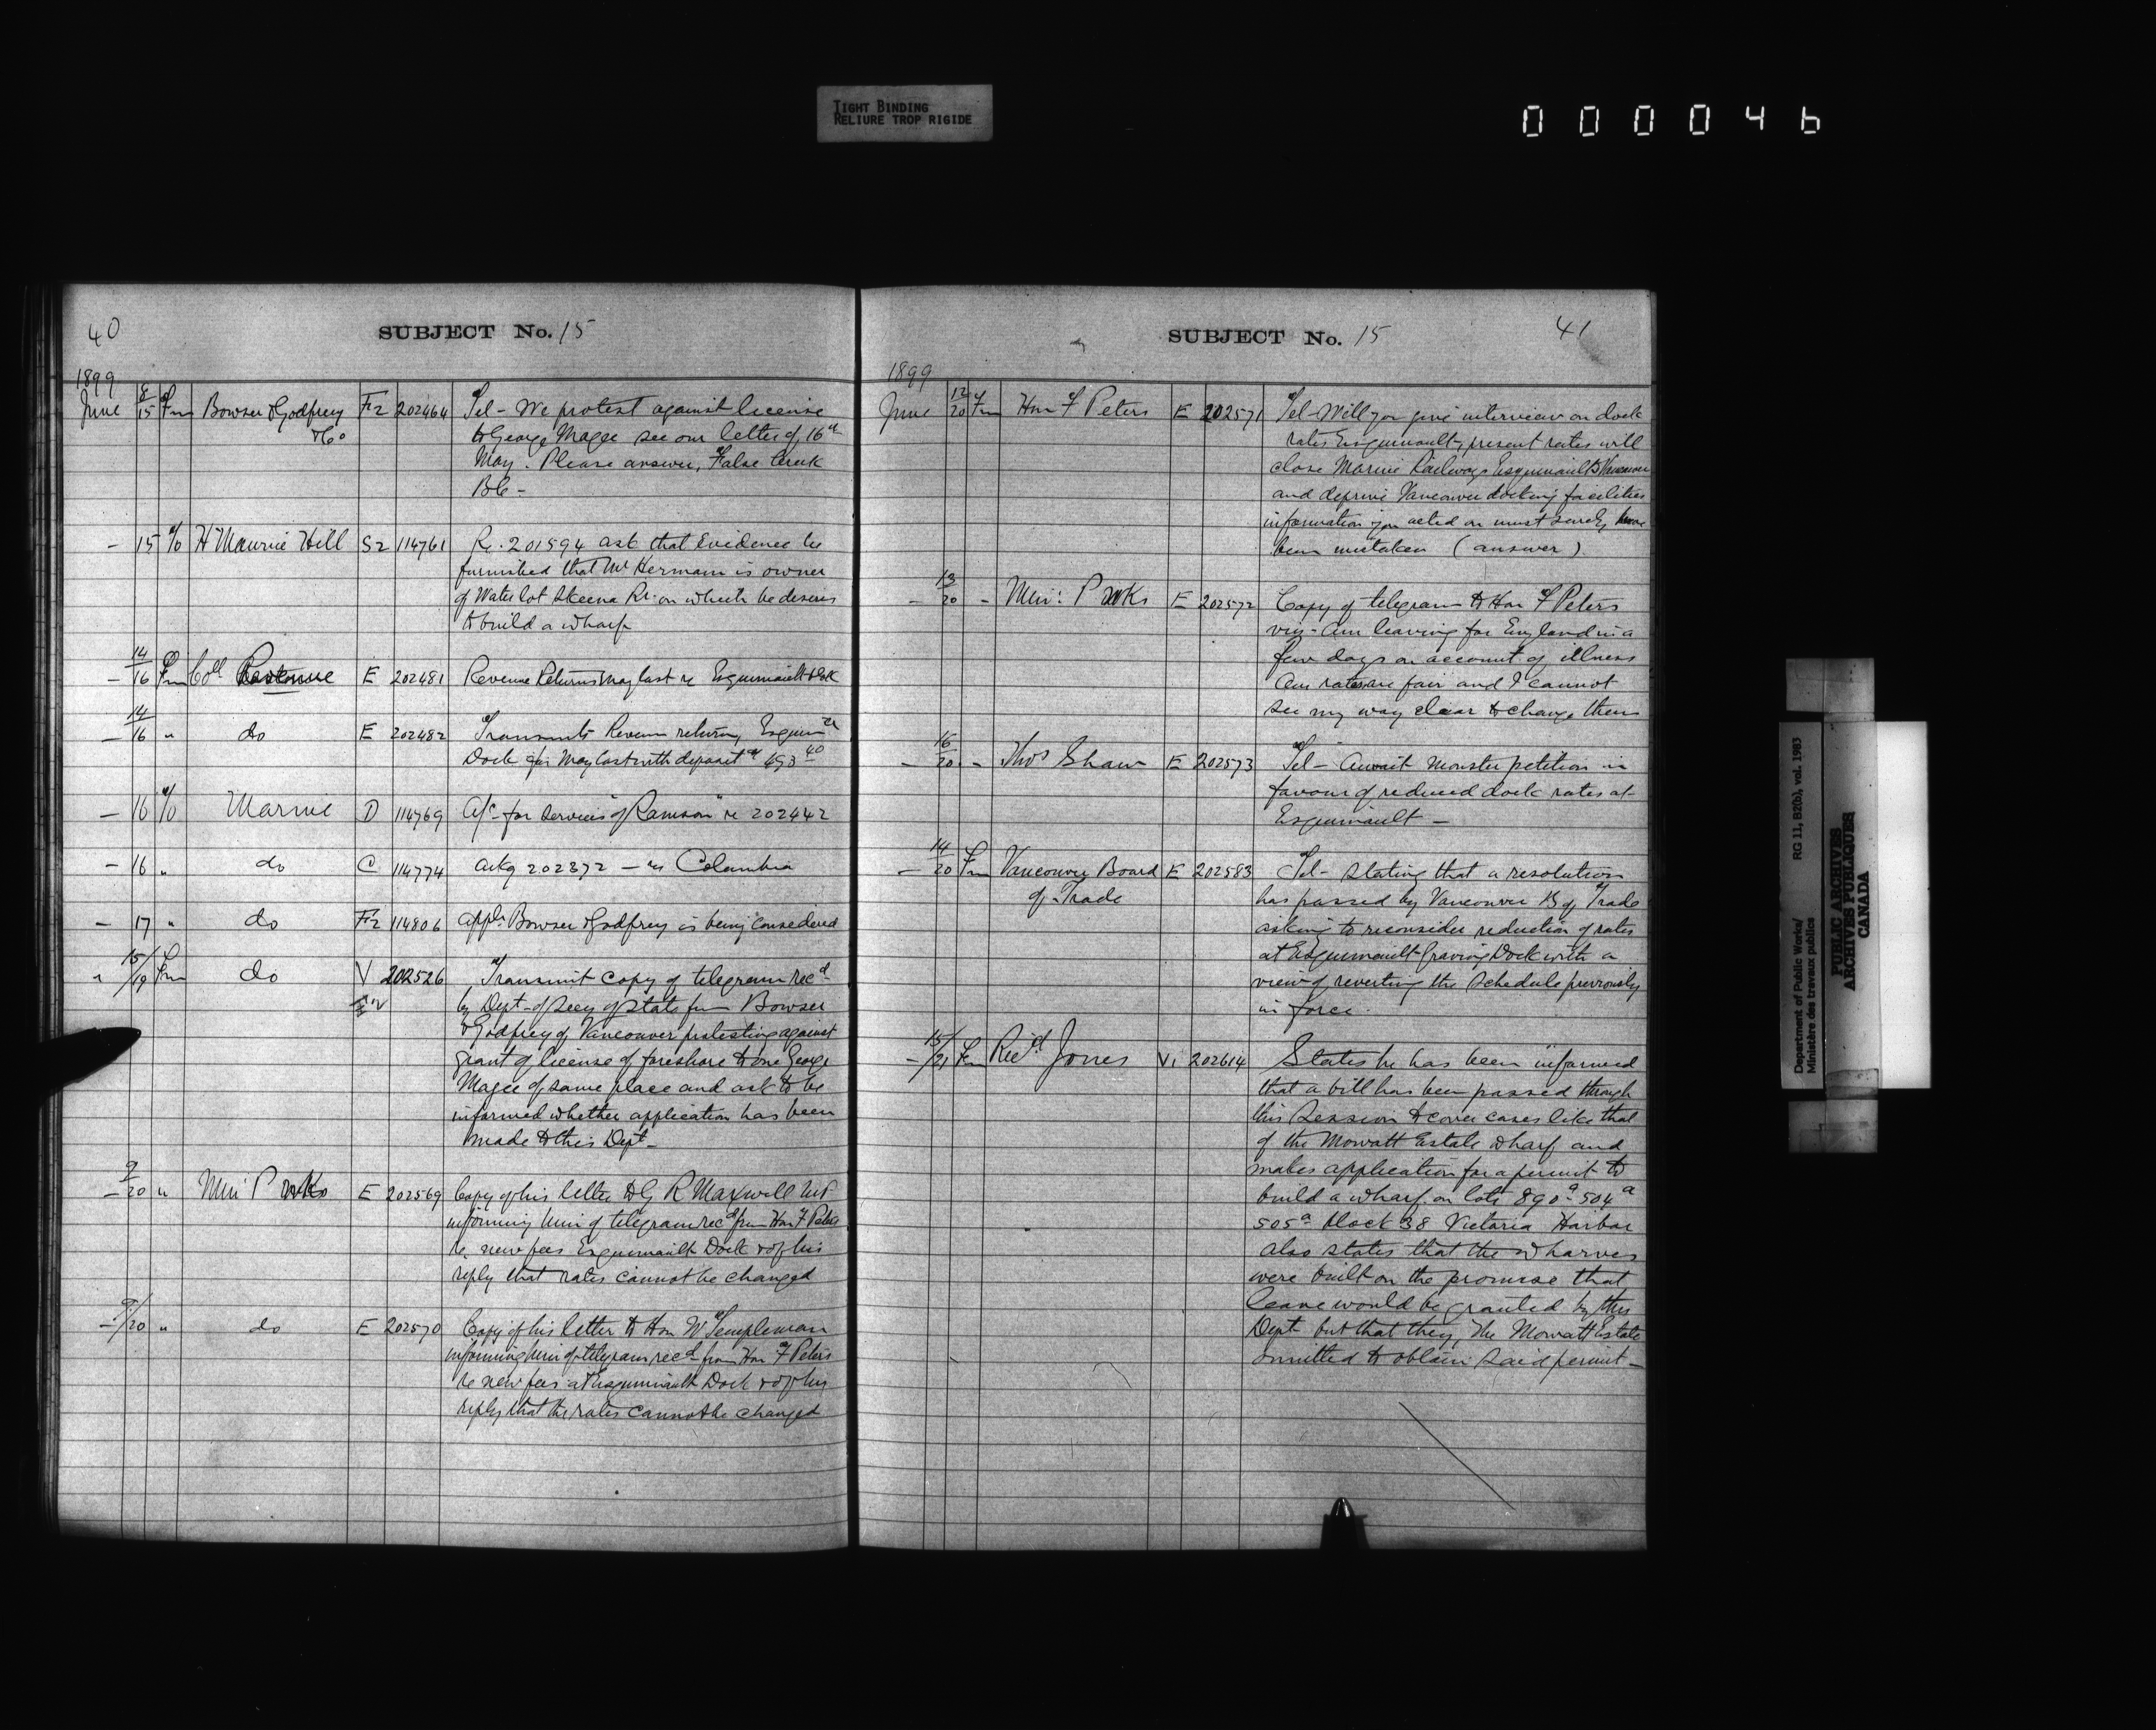 TIGHT BINDING
RELIURE TROP RIGIDE
000046
40
SUBJECT No. 15
1899
June 8/15 Fm Bowser & Godfrey F2 202464 Tel - We protest against license
& Co to George Magee see our letter of 16th
May. Please answer, False Creek
BC -
- 15 To H Maurice Hill S2 114761 Re. 201594 ask that Evidence be
furnished that Mr Hermann is owner
of Water lot Skeena Rr. on which he desires
to build a wharf
- 14/16 Fm Coll E 202481 Revenue Returns May last re Esquimault Dock
- 14/16 " do E 202482 Transmits Revenue returns Esquim
Dock for May last with deposit of 493 40
- 16 To Marine D 114769 a/c - for services of "Ramson" re 202442
- 16 " do C 114774 ackg 202372 - re Columbia
- 17 " do F2 114806 appln Bowser & Godfrey is being considered
" 15/19 Fm do V 202526 Transmit copy of telegram recd
by Dept - of Secy of State from Bowser
& Godfrey of Vancouver protesting against
grant of license of foreshore to one George
Magee of same place and ask to be
informed whether application has been
made to this Dept -
- 9/20 " Min P Wks E 202569 Copy of his letter to G R Maxwell MP
informing him of telegram recd from Hon F Peters
re. new fees Esquimault Dock & of his
reply that rates cannot be changed
- 9/20 " do E 202570 Copy of his letter to Hon W Templeman
informing him of telegram recd from Hon F Peters
re new fees at Esquimault Dock & of his
reply that the rates cannot be changed
SUBJECT No. 15
41
1899
June 12/20 Fm Hon F Peters E 202571 Tel - Will you give interview on dock
rates Esquimault, present rates will
close Marine Railways Esquimault & Vancouver
and deprive Vancouver docking facilities
information you acted on must surely have
been mistaken (answer)
- 13/20 - Min: P Wks E 202572 Copy of telegram to Hon F Peters
viz - Am leaving for England in a
few days on account of illness
Our rates are fair and I cannot
see my way clear to change them
- 16/20 - Thos Shaw E 202573 Tel - Await monster petition in
favour of reduced dock rates at
Esquimault -
- 14/20 Fm Vancouver Board E 202583 Tel - stating that a resolution
of Trade has passed by Vancouver B of Trade
asking to reconsider reduction of rates
at Esquimault Graving Dock with a
view of reverting the schedule previously
in force.
- 15/21 Fm Ricd Jones Vi 202614 States he has been informed
that a bill has been passed through
this Session to cover cases like that
of the Mowatt Estate wharf and
makes application for a permit to
build a wharf on lots 890a - 504a
505a block 38 Victoria Harbor
also states that the wharves
were built on the promise that
leave would be granted by this
Dept but that they, the Mowatt Estate
omitted to obtain said permit -
Department of Public Works/
Ministère des travaux publics
RG 11, B2(b), vol. 1983
PUBLIC ARCHIVES
ARCHIVES PUBLIQUES
CANADA